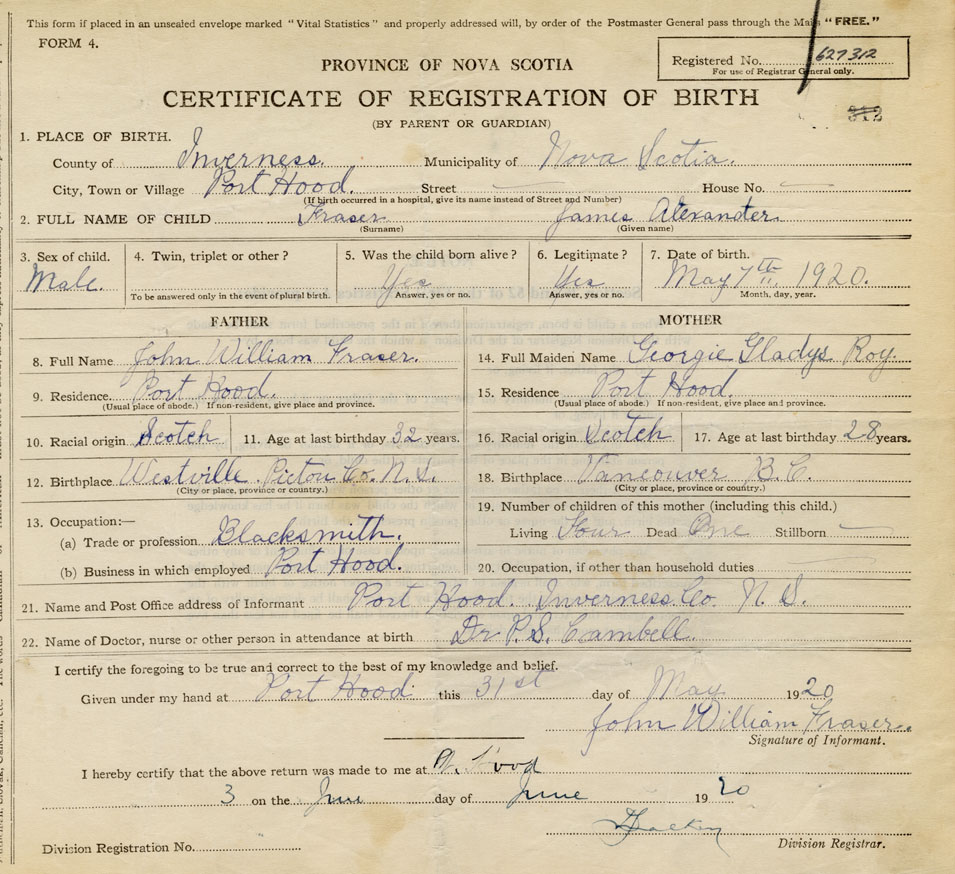 This form if placed in an unsealed envelope marked "Vital Statistics" and properly addressed will, by order of the Postmaster General pass through the Mails "FREE."
FORM 4.
Registered No. 627312
For use of Registrar General only.
PROVINCE OF NOVA SCOTIA
CERTIFICATE OF REGISTRATION OF BIRTH
312
(BY PARENT OR GUARDIAN)
1. PLACE OF BIRTH.
County of Inverness. Municipality of Nova Scotia.
City, Town or Village Port Hood. Street — House No. —
(If birth occurred in a hospital, give its name instead of Street and Number)
2. FULL NAME OF CHILD Fraser James Alexander.
(Surname) (Given name)
3. Sex of child. 4. Twin, triplet or other? 5. Was the child born alive? 6. Legitimate? 7. Date of birth.
Male. Yes Yes May 7th 1920.
To be answered only in the event of plural birth. Answer, yes or no. Answer, yes or no. Month, day, year.
FATHER
8. Full Name John William Fraser.
9. Residence. Port Hood.
(Usual place of abode.) If non-resident, give place and province.
10. Racial origin Scotch 11. Age at last birthday 32 years.
12. Birthplace Westville Pictou Co. N.S.
(City or place, province or country.)
13. Occupation:—
(a) Trade or profession Blacksmith.
(b) Business in which employed Port Hood.
MOTHER
14. Full Maiden Name Georgie Gladys Roy
15. Residence Port Hood.
(Usual place of abode.) If non-resident, give place and province.
16. Racial origin Scotch 17. Age at last birthday 28 years.
18. Birthplace Vancouver B.C.
(City or place, province or country.)
19. Number of children of this mother (including this child.)
Living Four Dead One Stillborn —
20. Occupation, if other than household duties —
21. Name and Post Office address of Informant Port Hood. Inverness Co. N.S.
22. Name of Doctor, nurse or other person in attendance at birth Dr P.S. Cambell.
I certify the foregoing to be true and correct to the best of my knowledge and belief.
Given under my hand at Port Hood this 31st day of May 1920
John William Fraser.
Signature of Informant.
I hereby certify that the above return was made to me at P. Hood
3 on the June day of June 1920
Division Registrar.
Division Registration No.